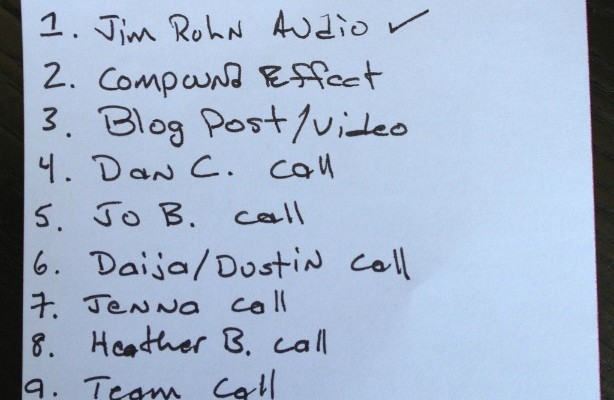 1. Jim Rohn Audio ✓
2. Compound Effect
3. Blog Post/Video
4. Dan C. call
5. Jo B. call
6. Daija/Dustin call
7. Jenna call
8. Heather B. call
9. Team call